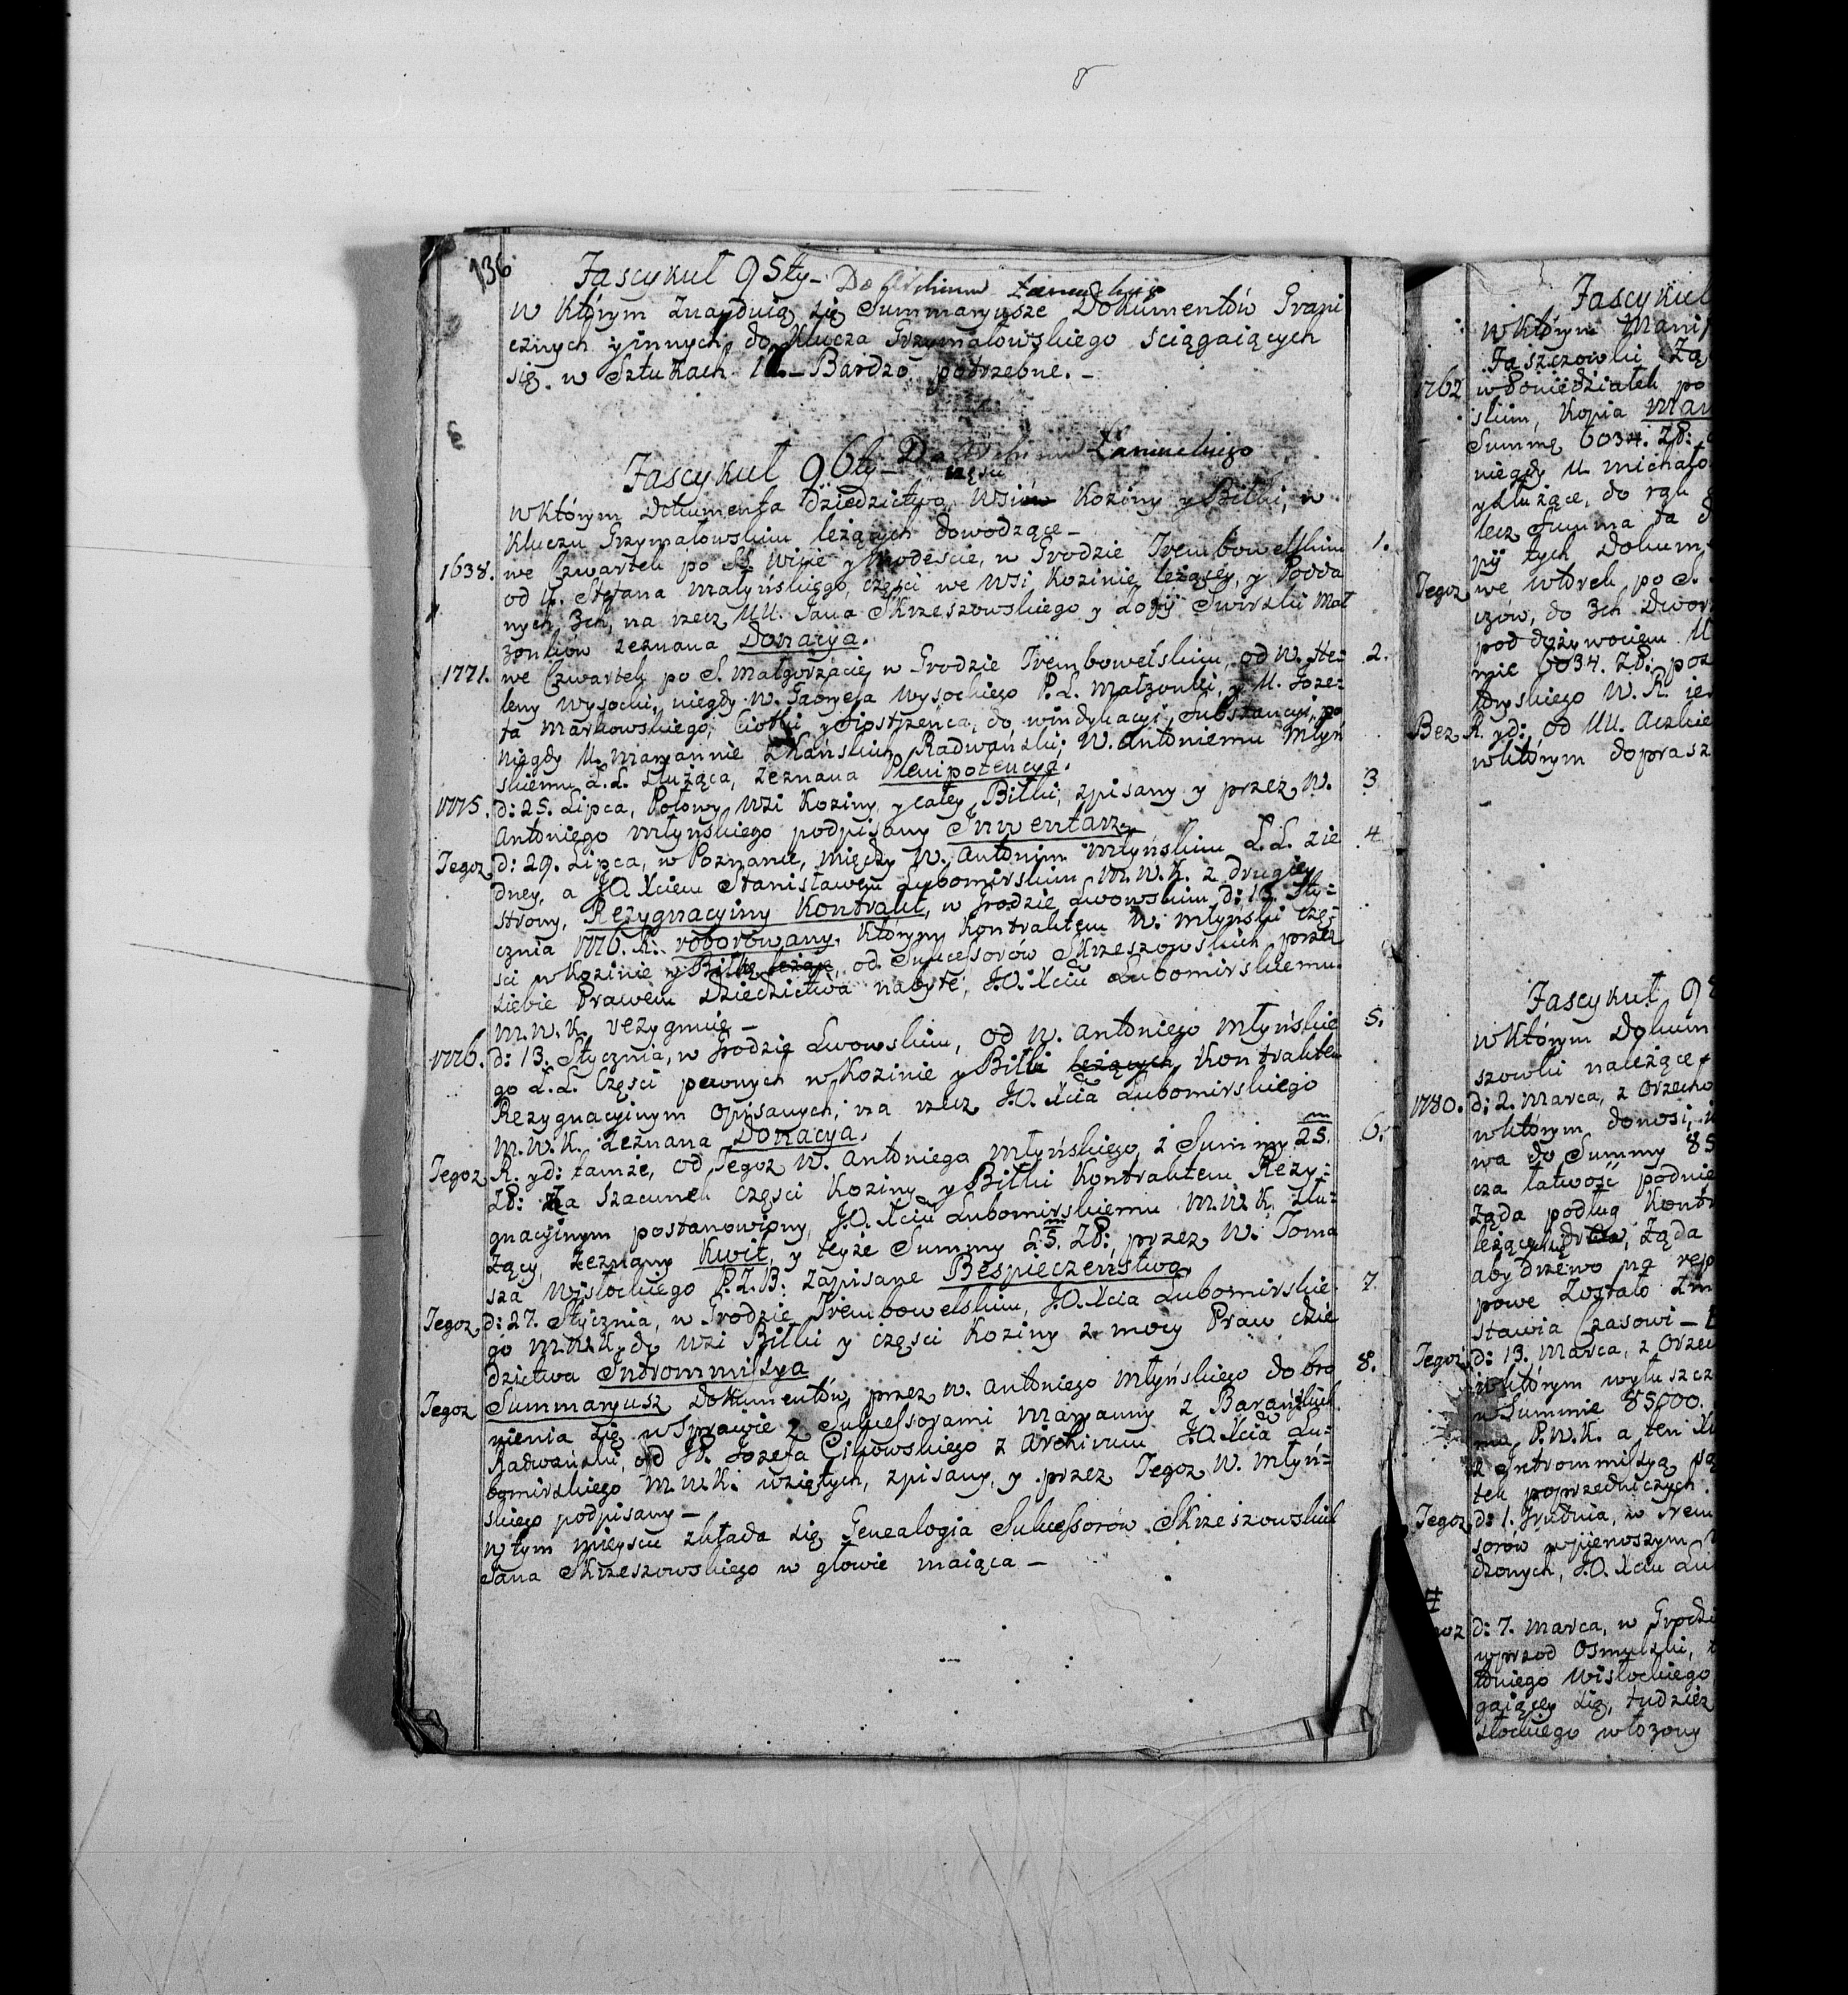 136
Fascykuł 95ty – Do Archivum Łańcuckiego
w Którym znayduią się Summaryusze Dokumentów Grani
cznych y innych, do Klucza Grzymałowskiego ściągaiących
się. w Sztukach 17. – Bardzo potrzebne. –
Fascykuł 96ty – Do Archivum Łańcuckiego
części
w Którym Dokumenta Dziedzictwo Wsiów Koziny y Bitki, w
Kluczu Grzymałowskim leżących dowodzące –
1638. we Czwartek po SS. Wicie y Modeście, w Grodzie Trembowelskim 1.
od U. Stefana Małyńskiego, części we Wsi Kozinie leżącey, y Podda
nych 3ch, na rzecz UU. Jana Skrzeszowskiego y Zofij Swirski Mał
żonków zeznana Donacya.
1771. we Czwartek po S. Małgorzacie, w Grodzie Trembowelskim, od W. He: 2.
leny Wysocki, niegdy W. Gabryela Wysockiego P. L. Małżonki, y U. Joze:
fa Markowskiego, Ciotki y Siostrzeńca, do windykacyi Substancyi, po
niegdy U. Maryannie Radwański, W. Antoniemu Młyń
skiemu L. L. służąca, zeznana Plenipotencya.
1775. d: 25. Lipca, Połowy Wsi Koziny, y całey Bitki, spisany y przez W. 3
Antoniego Młyńskiego podpisany Inwentarz.
Tegoz d: 29. Lipca, w Poznance, między W. Antonim Młyńskim L. L. z ie 4.
dney, a J.O. Xciem Stanisławem Lubomirskim M. W. K. z drugiey
strony, Rezygnacyiny Kontrakt, w Grodzie Lwowskim d: 13. Sty:
cznia 1776. R. roborowany. Którym Kontraktem W. Młyński czę:
ści w Kozinie y Bitkę leżące, od Sukcessorów Skrzeszowskich przez
siebie Prawem Dziedzictwa nabyte, J.O. Xciu Lubomirskiemu
M. W. K. rezygnuie –
1776. d: 13. Stycznia, w Grodzie Lwowskim, od W. Antoniego Młyńskie 5.
go L. L. Części pewnych w Kozinie y Bitki leżących Kontraktem
Rezygnacyinym opisanych, na rzecz J.O. Xcia Lubomirskiego
M. W. K. zeznana Donacya.
Tegoz R. y d: tamże, od Tegoz W. Antoniego Młyńskiego, z Summy 25. m 6.
Zł: za Szacunek części Koziny y Bitki Kontraktem Rezy:
gnacyinym postanowiony, J.O. Xciu Lubomirskiemu M. W. K. słu:
żący, zeznany Kwit, y teyże Summy 25. m Zł:, przez W. Toma
sza Wisłockiego P. Z. B. zapisane Bespieczeństwo
Tegoz d: 27. Stycznia, w Grodzie Trembowelskim, J.O. Xcia Lubomirskie: 7.
go M. W. K. do Wsi Bitki y części Koziny z mocy Praw dzie
dzictwa Intromissya
Tegoz Summaryusz Dokumentów, przez W. Antoniego Młyńskiego do bro 8.
nienia się w Sprawie z Sukcessorami Maryanny z Barańskich
Radwański, od JP. Jozefa Cikowskiego z Archivum J.O. Xcia Lu:
bomirskiego M. W. K. wziętych, spisany, y przez Tegoz W. Młyń:
skiego podpisany –
W tym mieyscu składa się Genealogia Sukcessorów Skrzeszowskich
Jana Skrzeszowskiego w głowie maiąca –
Fascykuł
w Którym Mani
Jaszczowki
1762 w Poniedziałek po
skim, Kopia
Summę 6034. Zł:
niegdy U. Michało
y służące, do rąk
lecz Summa ta
pij tych Dokum
Tegoz we Wtorek po S.
czów, do 3ch Dwor
pod dożywociem U
mie 6034. Zł: poz
W. R. ie
Bez R. y d: od UU.
w Którym doprasz
Fascykuł 98
w Którym Dokum
szowki należące
1780. d: 2. Marca, z Orzecho
w Którym donosi, i
wa do Summy 85
cza łatwość podnie
żąda podług Kontr
leżący, żąda
aby drzewo na rep
powe Zostało
stawia Czasowi –
Tegoz d: 13. Marca, z Orze
w Którym wyłuszcz
w Summie 85000.
P. W. K. a ten
z Intromissyą
tek poprzedniczych
Tegoz d: 1. Grudnia, w Trem
sorów w pierwszym
dzonych, J.O. Xciu Lu
#
d: 7. Marca, w Grodzi
wprzod Osmulski,
tniego Wisłockiego
gaiącey się, tudzież
słockiego włożony